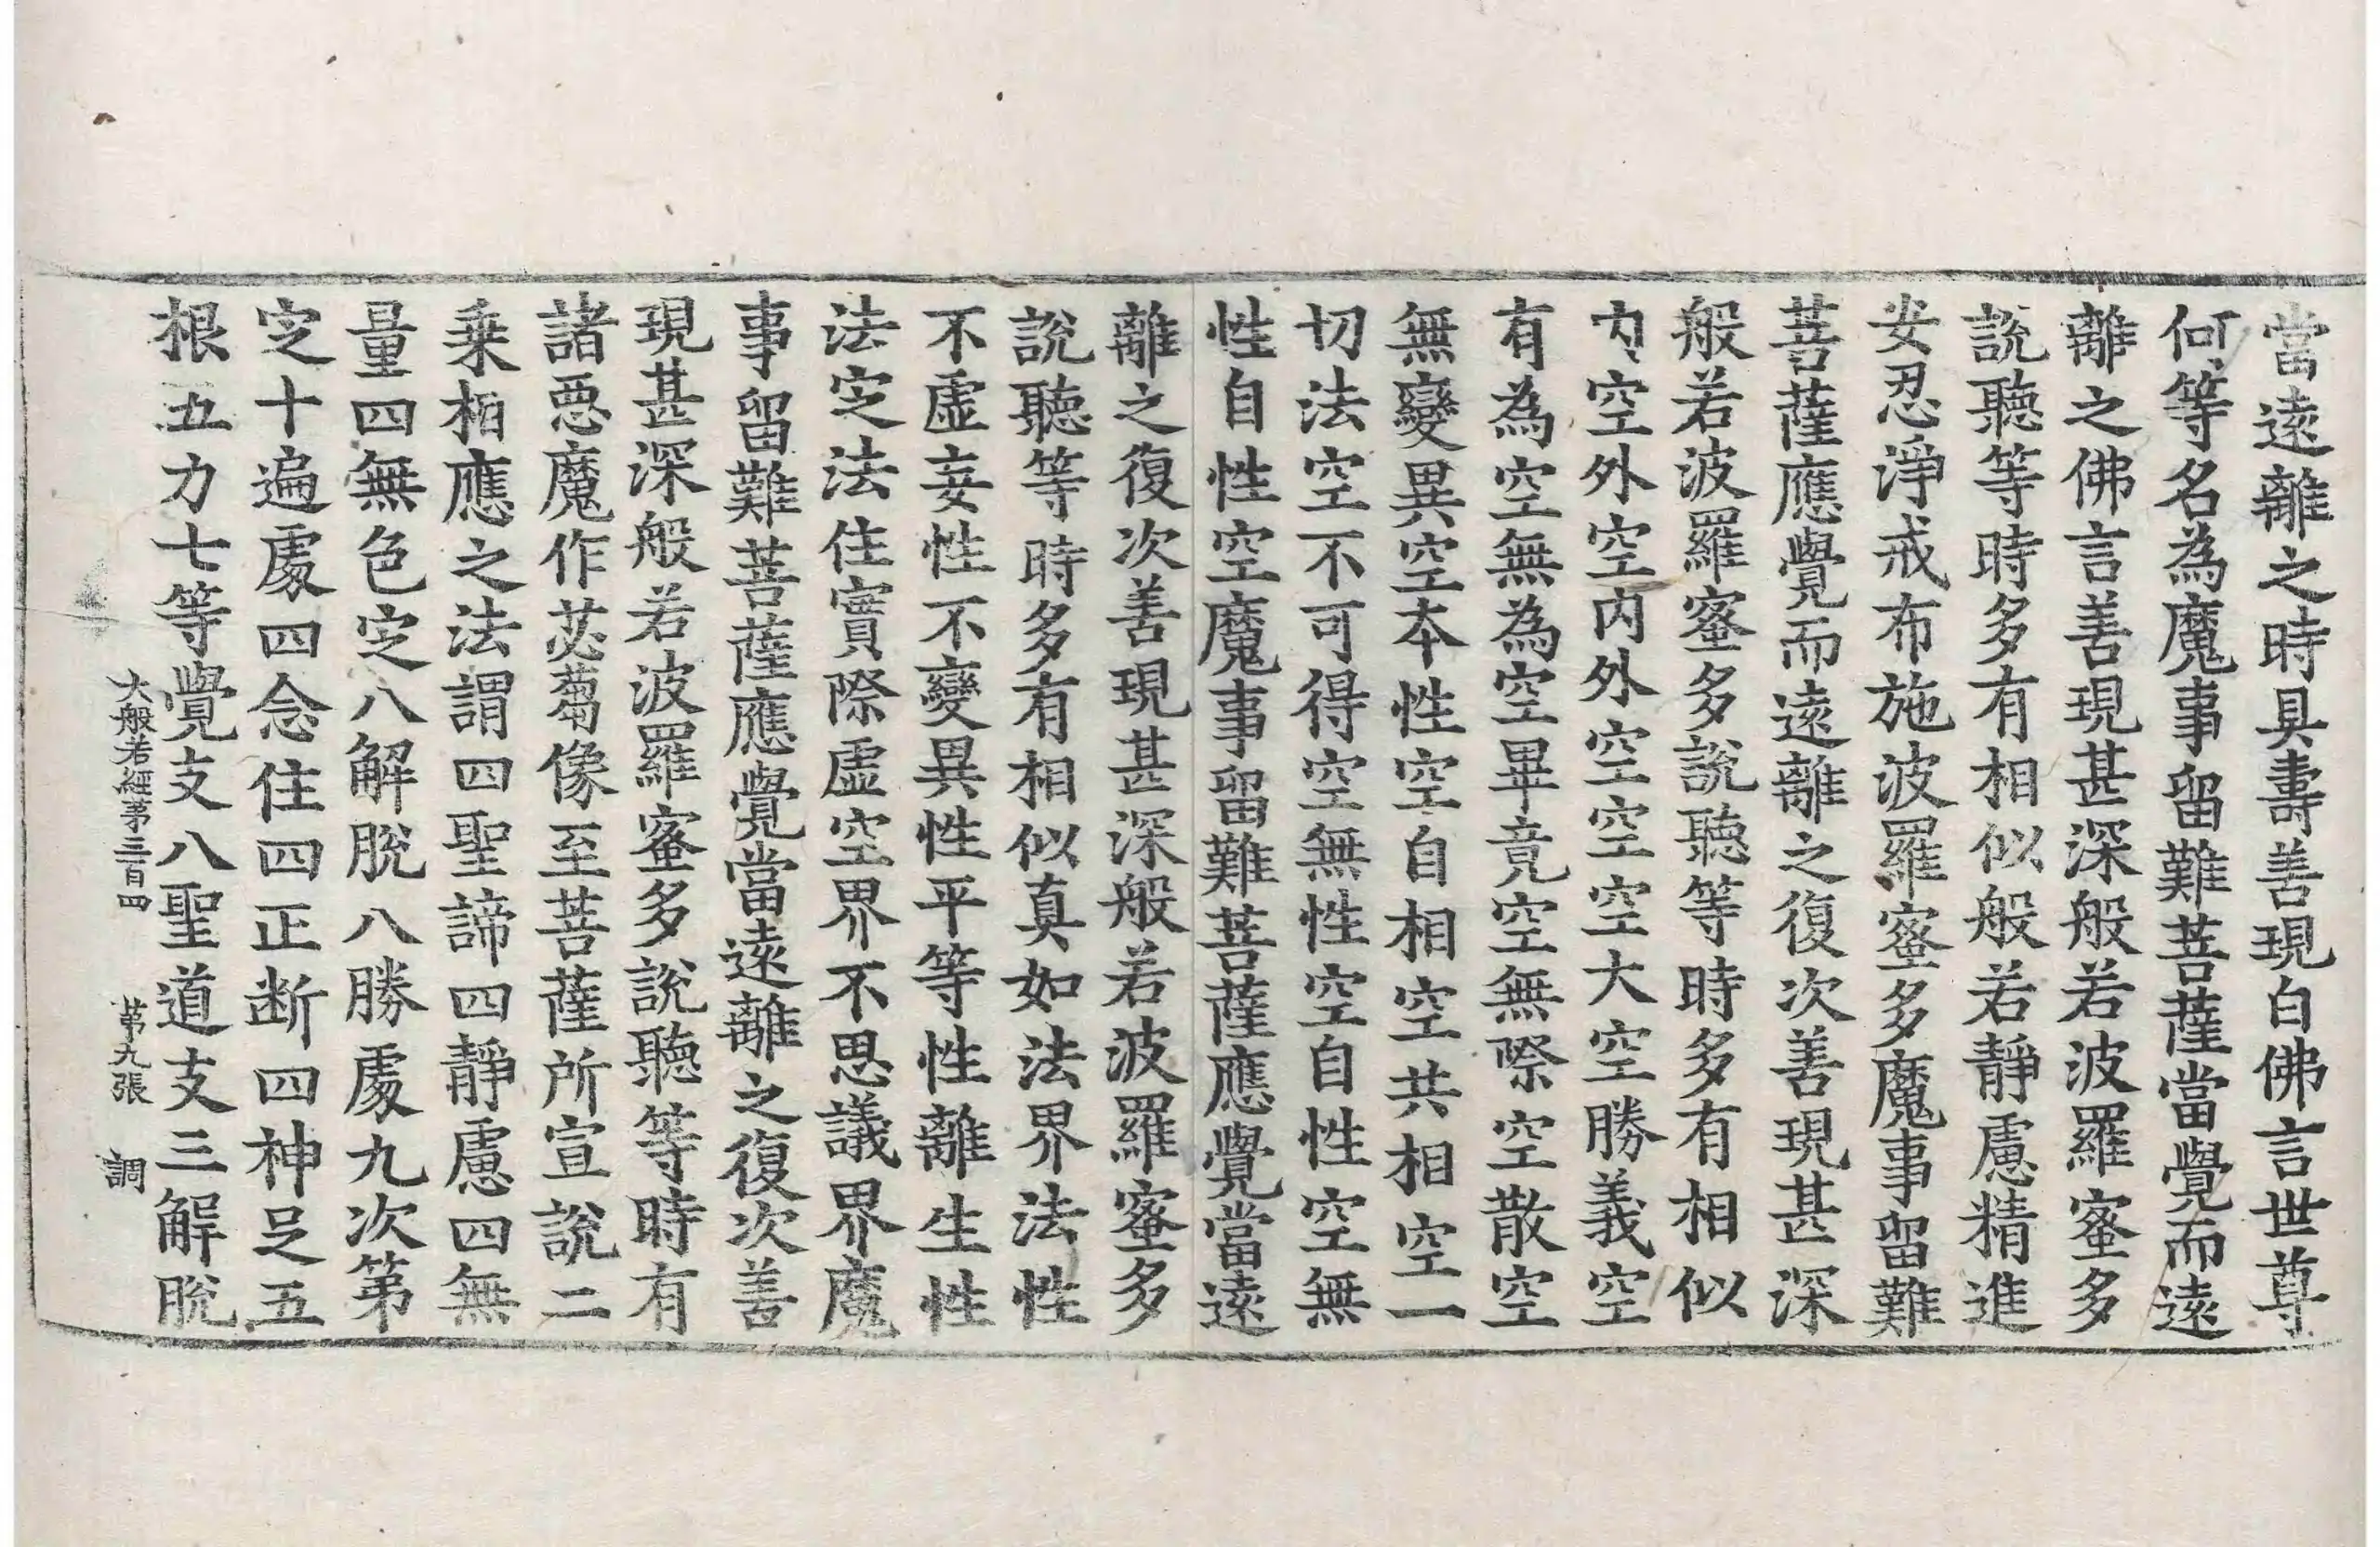 當遠離之時具壽善現白佛言世尊
何等名為魔事留難菩薩當覺而遠
離之佛言善現甚深般若波羅蜜多
說聽等時多有相似般若靜慮精進
安忍淨戒布施波羅蜜多魔事留難
菩薩應覺而遠離之復次善現甚深
般若波羅蜜多說聽等時多有相似
內空外空內外空空空大空勝義空
有為空無為空畢竟空無際空散空
無變異空本性空自相空共相空一
切法空不可得空無性空自性空無
性自性空魔事留難菩薩應覺當遠
離之復次善現甚深般若波羅蜜多
說聽等時多有相似真如法界法性
不虛妄性不變異性平等性離生性
法定法住實際虛空界不思議界魔
事留難菩薩應覺當遠離之復次善
現甚深般若波羅蜜多說聽等時有
諸惡魔作苾蒭像至菩薩所宣說二
乘相應之法謂四聖諦四靜慮四無
量四無色定八解脫八勝處九次第
定十遍處四念住四正斷四神足五
根五力七等覺支八聖道支三解脫
大般若經第三百四　第九張　調